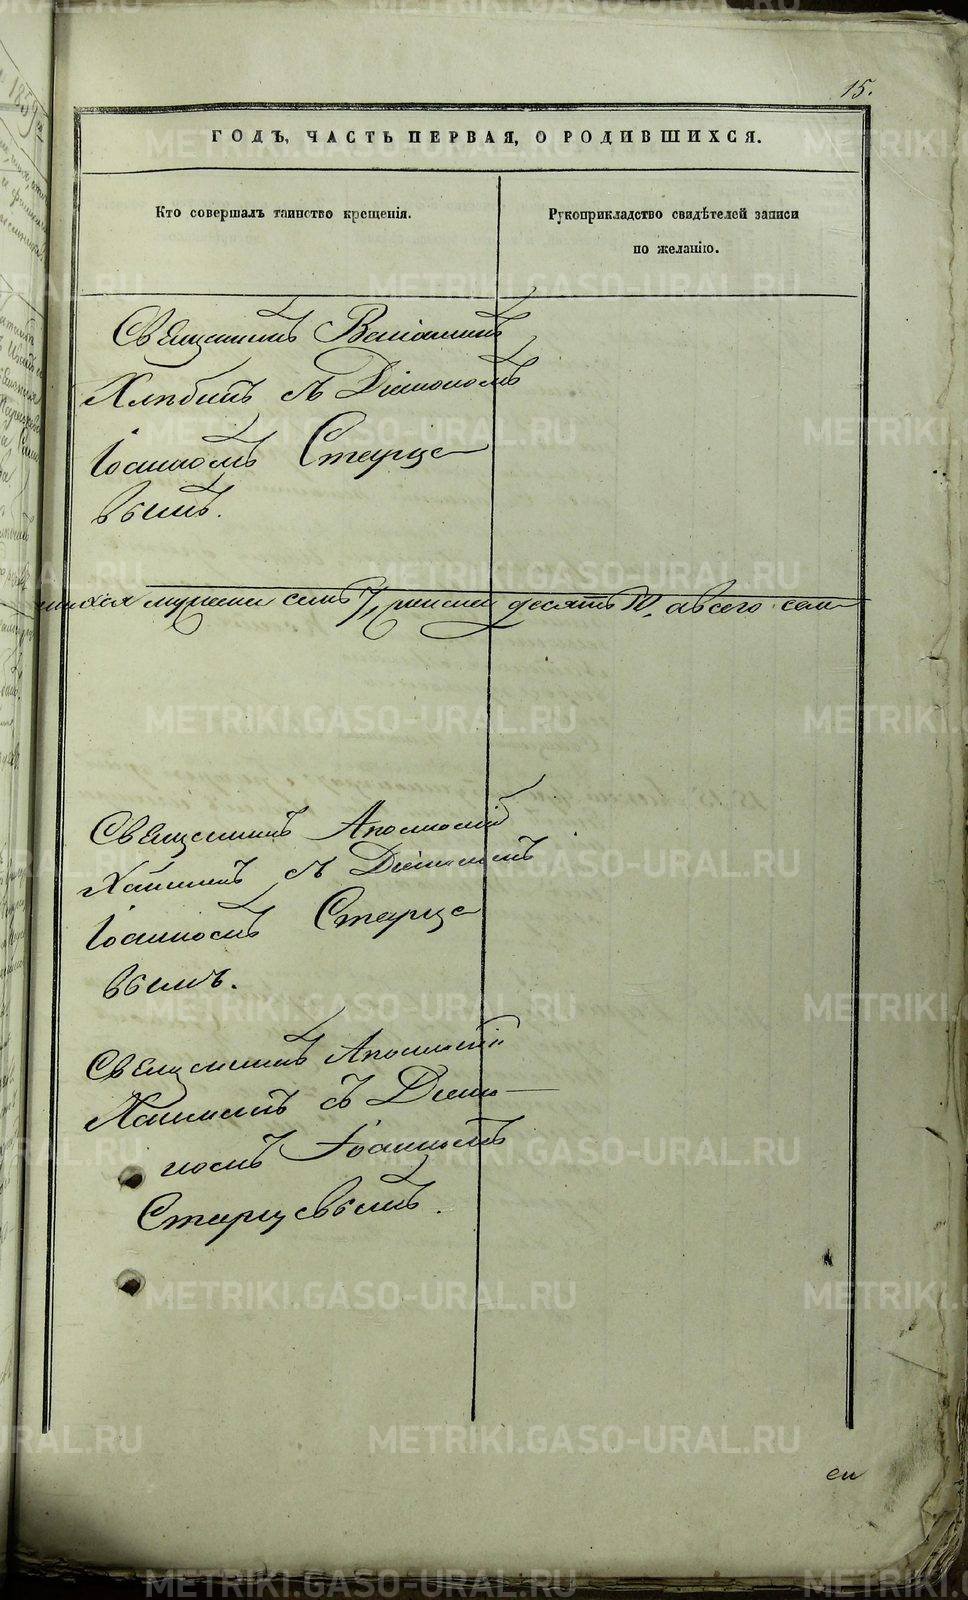 15.
ГОДЪ, ЧАСТЬ ПЕРВАЯ, О РОДИВШИХСЯ.
Кто совершалъ таинство крещенія.
Рукоприкладство свидѣтелей записи
по желанію.
Священникъ Веніаминъ
Хлѣбинъ съ Діакономъ
Іоанномъ Старце
вымъ.
шихся мужеска семь 7, женска десять 10, а всего сем
Священникъ
съ Діакономъ
Іоанномъ Старце
вымъ.
Священникъ
съ Діако-
номъ Іоанномъ
Старцевымъ.
METRIKI.GASO-URAL.RU